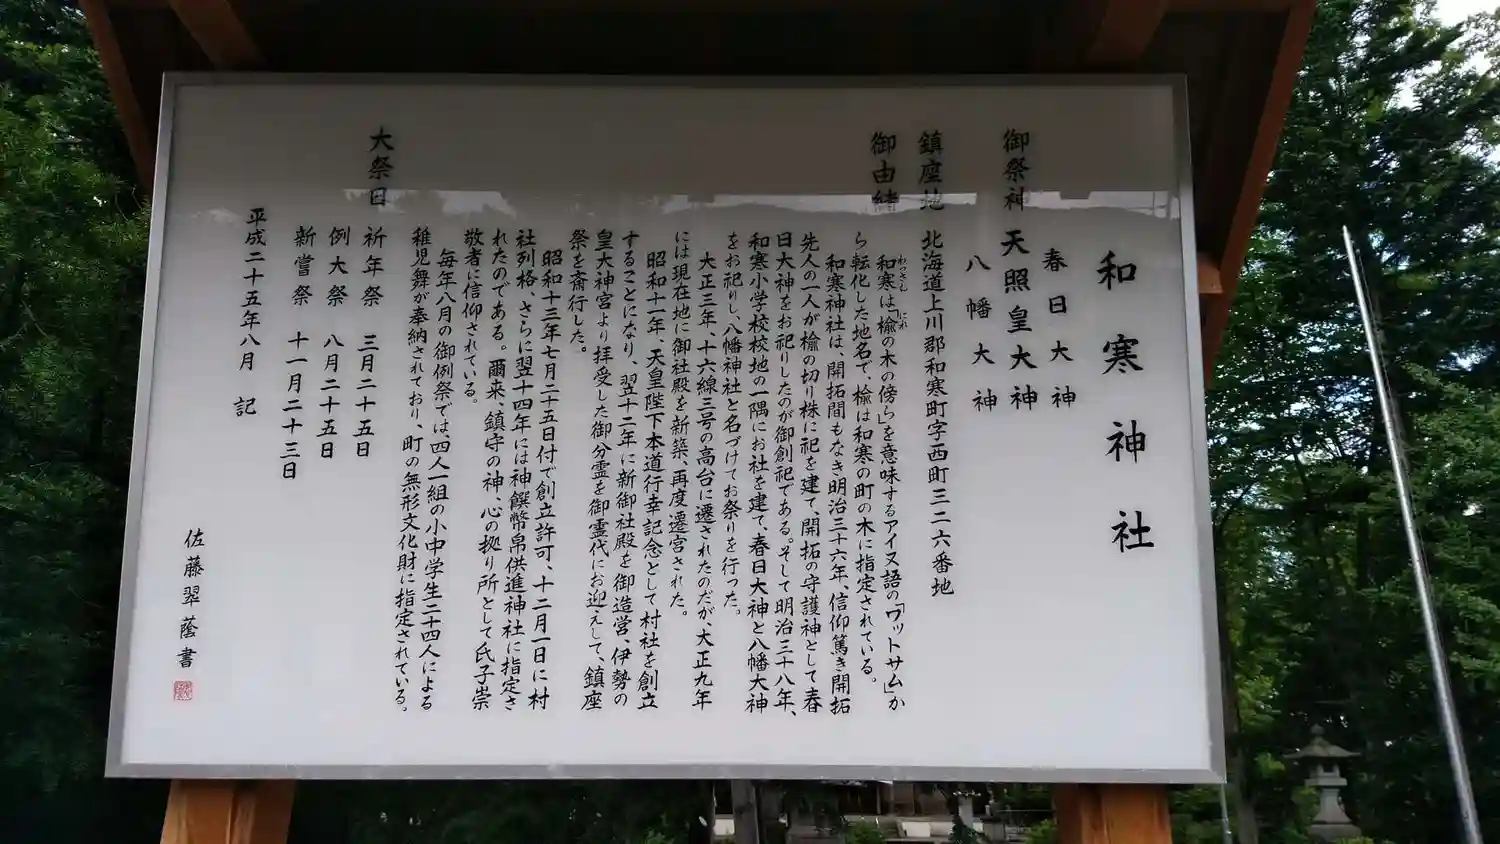 和寒神社
御祭神
春日大神
天照皇大神
八幡大神
鎮座地 北海道上川郡和寒町字西町三二六番地
御由緒
わっさむ にれ
和寒は「楡の木の傍ら」を意味するアイヌ語の「ワットサム」か
ら転化した地名で、楡は和寒の町の木に指定されている。
和寒神社は、開拓間もなき明治三十六年、信仰篤き開拓
先人の一人が楡の切り株に祀を建て、開拓の守護神として春
日大神をお祀りしたのが御創祀である。そして明治三十八年、
和寒小学校校地の一隅にお社を建て、春日大神と八幡大神
をお祀りし、八幡神社と名づけてお祭りを行った。
大正三年、十六線三号の高台に遷されたのだが、大正九年
には現在地に御社殿を新築、再度遷宮された。
昭和十一年、天皇陛下本道行幸記念として村社を創立
することになり、翌十二年に新御社殿を御造営、伊勢の
皇大神宮より拝受した御分霊を御霊代にお迎えして、鎮座
祭を斎行した。
昭和十三年七月二十五日付で創立許可、十二月一日に村
社列格、さらに翌十四年には神饌幣帛供進神社に指定さ
れたのである。爾来、鎮守の神、心の拠り所として氏子崇
敬者に信仰されている。
毎年八月の御例祭では四人一組の小中学生二十四人による
稚児舞が奉納されており、町の無形文化財に指定されている。
大祭日
祈年祭 三月二十五日
例大祭 八月二十五日
新嘗祭 十一月二十三日
平成二十五年八月 記
佐藤翠蔭書